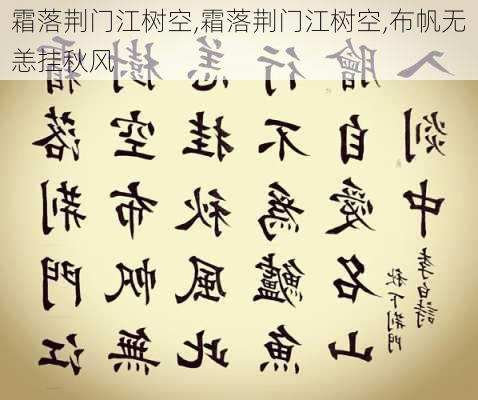 霜落荆门江树空,霜落荆门江树空,布帆无
恙挂秋风
霜落荆門江
樹空布帆無
恙挂秋風此
行不爲鱸魚
膾自愛名山
入剡中
秋下荆門
李白詩